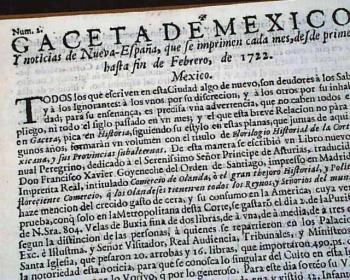 Num. 2.
GACETA DE MEXICO
Y noticias de Nueva-España, que se imprimen cada mes, desde prime
hasta fin de Febrero, de 1722.
Mexico.
TODOS los que escriven en esta Ciudad algo de nuevo, son deudores à los Sab
y à los Ignorantes: à los unos por su discrecion, y à los otros por su inhab
dad; para su enseñanza, es precisa una advertencia, que no caben todos e
pliego, ni todo lo passado en un mes; y el que esta breve Relacion no para
en Gacetas, para en Historia, siguiendo su estylo en estas planas, que juntas de aqui
gunos años, formaràn un volumen con el titulo de Horologio Historial de la Corte
xicana, y sus Provincias subalternas. De esta manera se escrivió un Libro nuevo
qual Peregrino, dedicado à el Serenissimo Señor Principe de Asturias, traducido
Don Francisco Xavier Goyeneche del Orden de Santiago, impresso en Madrid
Imprenta Real, intitulado Comercio de Olanda, ò el gran thesoro Historial, y Polit
floreciente Comercio, que los Olandeses tienen en todos los Reynos, y Señorios del mun
haze mencion del crecido gasto de cera, y su consumo en la America, cuya ver
prueba, con q solo en la Metropolitana desta Corte, se gastaron el dia 2. de la Purif
de N. Sra. 804. Velas de Buxia finas de dos libras, de à una, de à media, de à tres o
segun la distincion de las personas; à quienes se repartieron en los Palacios
Exc. è Illustriss. y Señor Visitador, Real Audiencia, Tribunales, y Ministros
Santa Iglesia, que pesaron 20. arrobas, y 16. libras, que importaron 490. ps.
la notoriedad esta noticia, para que se conosca lo singular del Culto en esta